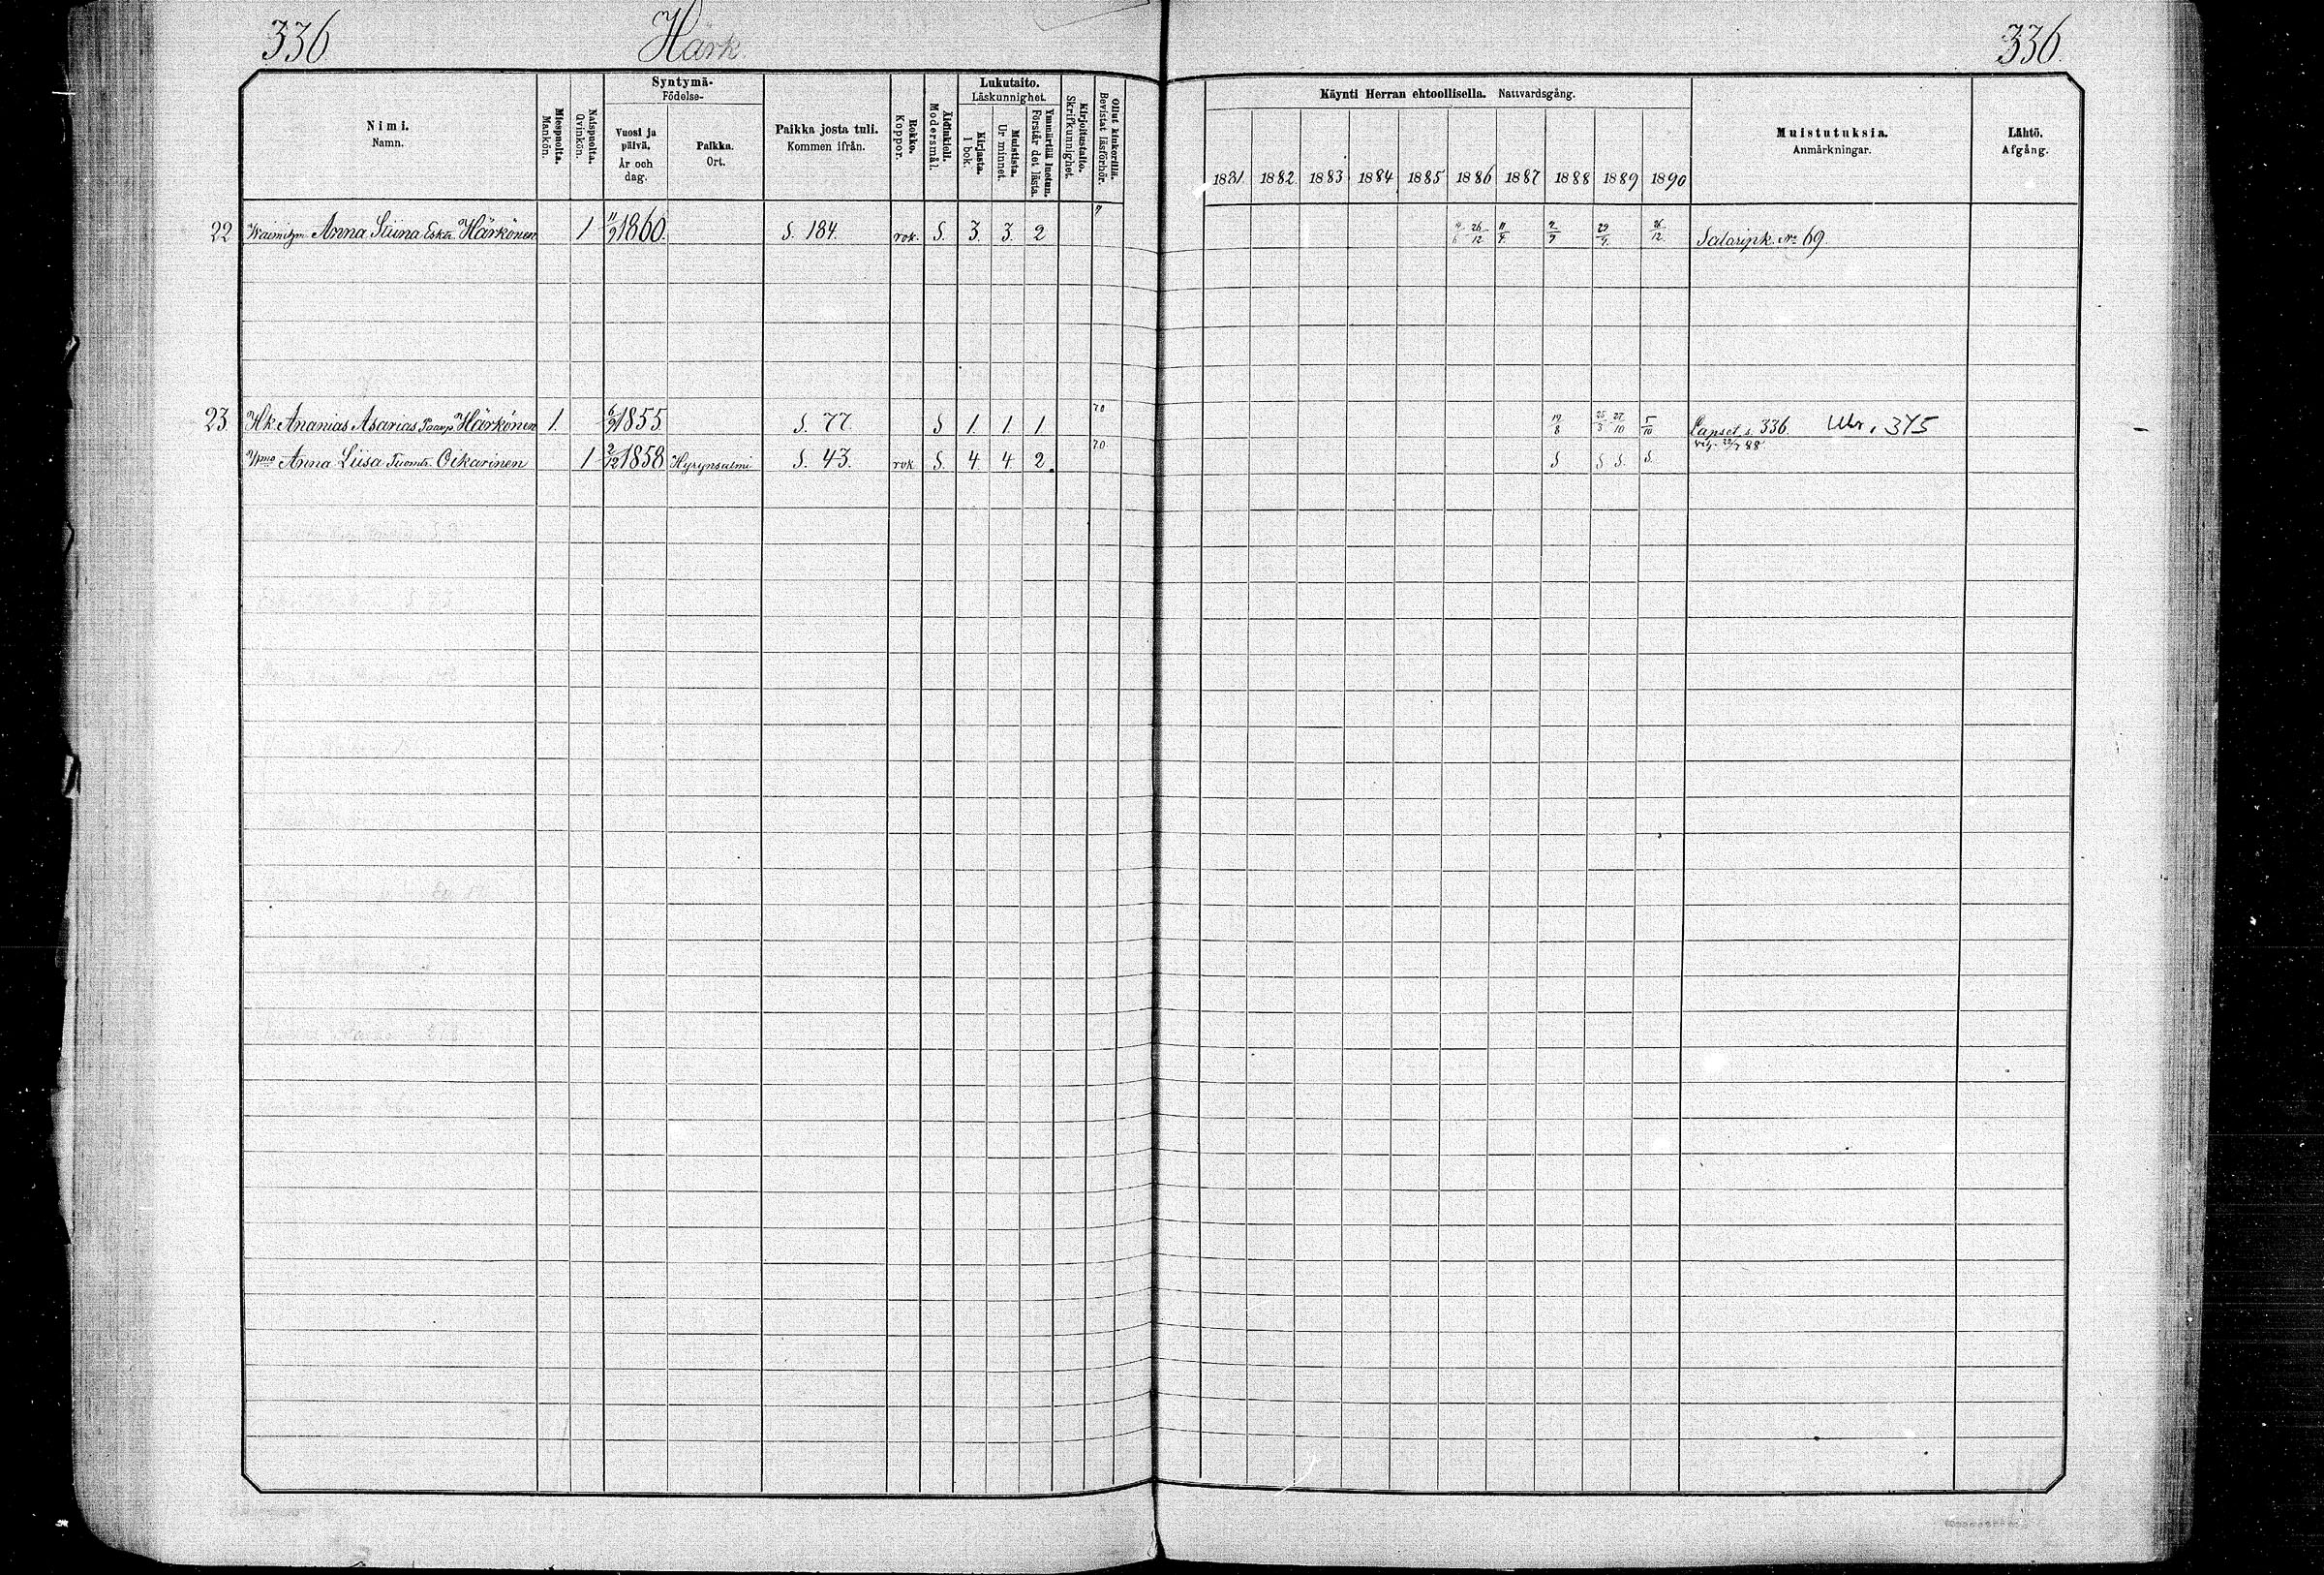 336 Härk. 336.
Nimi.
Namn.
Miespuolta.
Mankön.
Naispuolta.
Qvinkön.
Syntymä-
Födelse-
Vuosi ja
päivä.
År och
dag.
Paikka.
Ort.
Paikka josta tuli.
Kommen ifrån.
Rokko.
Koppor.
Äidinkieli.
Modersmål.
Lukutaito.
Läskunnighet.
Kirjasta.
I bok.
Muistista.
Ur minnet.
Ymmärtää luetun.
Förstår det lästa.
Kirjoitustaito.
Skrifkunnighet.
Ollut kinkerillä.
Bevistat läsförhör.
Käynti Herran ehtoollisella. Nattvardsgång.
1881 1882 1883 1884 1885 1886 1887 1888 1889 1890
Muistutuksia.
Anmärkningar.
Lähtö.
Afgång.
22 Anna Siina Eskt. Härkönen 1 11/9 1860. S. 184. rok. S. 3. 3. 2 26/12 11/4 29/4 26/12 Salaripk. No 69
23 Hk. Ananias Asarias Paavp. Härkönen 1. 6/9 1855. S. 77. S 1. 1. 1 70 19/8 25/3 27/10 5/10 Lapset s. 336. 375
vig. 22/7 88.
Vmo Anna Liisa Tuomt. Ockarinen 1 2/12 1858 Hyrynsalmi S. 43. rok S. 4. 4. 2. 70. S S S. S.